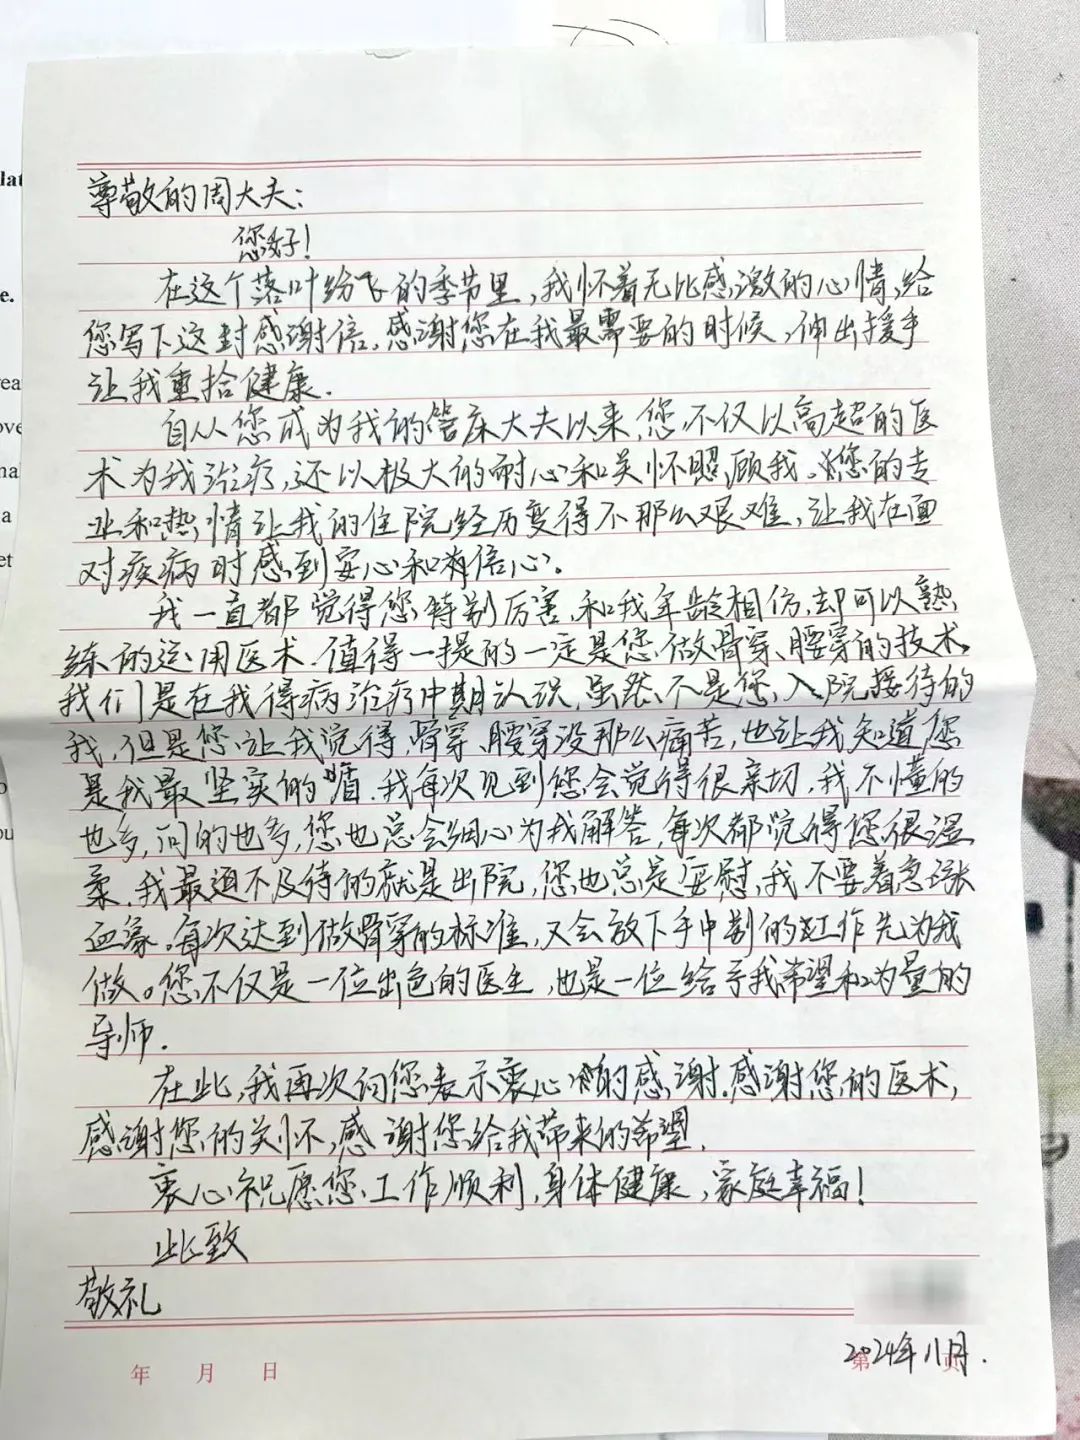 尊敬的周大夫：
您好！
在这个落叶纷飞的季节里，我怀着无比感激的心情，给
您写下这封感谢信，感谢您在我最需要的时候，伸出援手
让我重拾健康.
自从您成为我的管床大夫以来，您不仅以高超的医
术为我治疗，还以极大的耐心和关怀照顾我。您的专
业和热情让我的住院经历变得不那么艰难，让我在面
对疾病时感到安心和有信心。
我一直都觉得您特别厉害，和我年龄相仿，却可以熟
练的运用医术.值得一提的一定是您做骨穿、腰穿的技术。
我们是在我得病治疗中期认识，虽然不是您入院接待的
我，但是您让我觉得骨穿、腰穿没那么痛苦，也让我知道您
是我最坚实的盾.我每次见到您会觉得很亲切，我不懂的
也多，问的也多，您也总会细心为我解答，每次都觉得您很温
柔.我最迫不及待的就是出院，您也总是安慰我不要着急涨
血象。每次达到做骨穿的标准，又会放下手中别的工作先为我
做。您不仅是一位出色的医生，也是一位给予我希望和力量的
导师.
在此，我再次向您表示衷心的感谢.感谢您的医术，
感谢您的关怀，感谢您给我带来的希望.
衷心祝愿您工作顺利，身体健康，家庭幸福！
此致
敬礼
2024年11月.
年 月 日 第 页
lat
e.
rea
ove
na
a
et